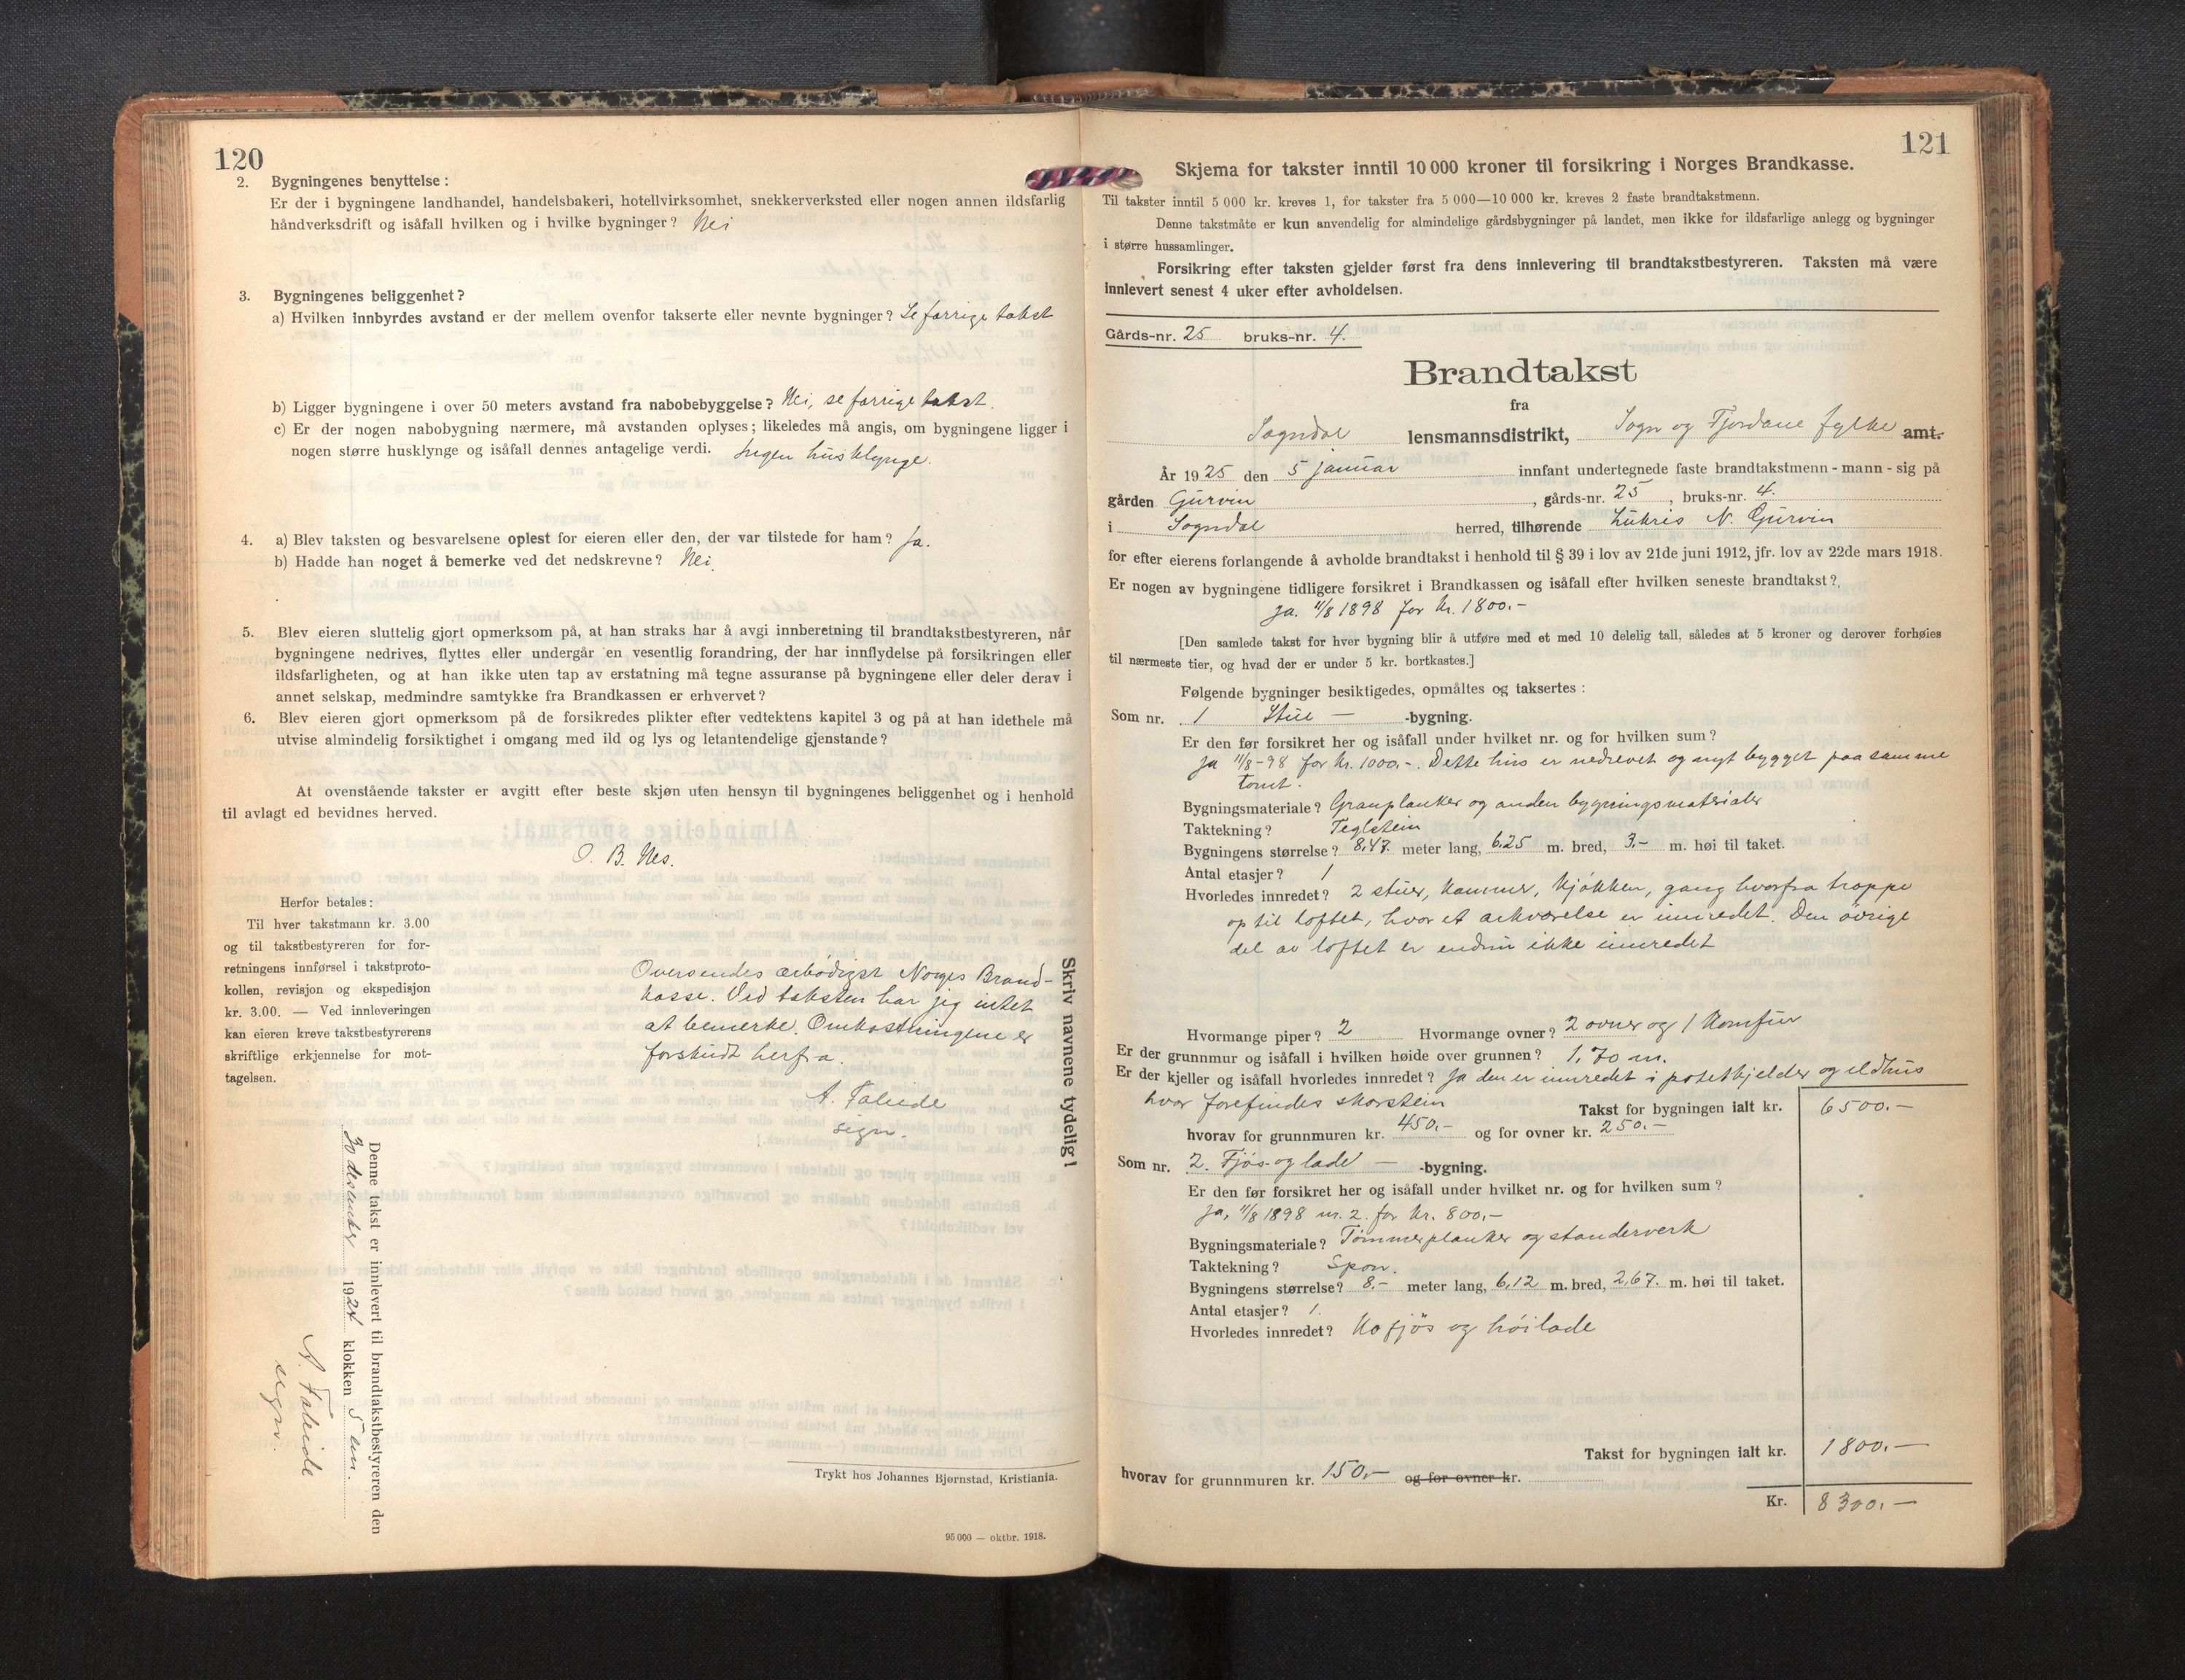 120
2. Bygningenes benyttelse :
Er der i bygningene landhandel, handelsbakeri, hotellvirksomhet, snekkerverksted eller nogen annen ildsfarlig
håndverksdrift og isåfall hvilken og i hvilke bygninger? Nei
3. Bygningenes beliggenhet?
a) Hvilken innbyrdes avstand er der mellem ovenfor takserte eller nevnte bygninger? Se forrige takst
b) Ligger bygningene i over 50 meters avstand fra nabobebyggelse? Nei, se forrige takst.
c) Er der nogen nabobygning nærmere, må avstanden oplyses; likeledes må angis, om bygningene ligger i
nogen større husklynge og isåfall dennes antagelige verdi. Ingen husklynge.
4. a) Blev taksten og besvarelsene oplest for eieren eller den, der var tilstede for ham? Ja.
b) Hadde han noget å bemerke ved det nedskrevne? Nei.
5. Blev eieren sluttelig gjort opmerksom på, at han straks har å avgi innberetning til brandtakstbestyreren, når
bygningene nedrives, flyttes eller undergår en vesentlig forandring, der har innflydelse på forsikringen eller
ildsfarligheten, og at han ikke uten tap av erstatning må tegne assuranse på bygningene eller deler derav i
annet selskap, medmindre samtykke fra Brandkassen er erhvervet?
6. Blev eieren gjort opmerksom på de forsikredes plikter efter vedtektens kapitel 3 og på at han idethele må
utvise almindelig forsiktighet i omgang med ild og lys og letantendelige gjenstande?
At ovenstående takster er avgitt efter beste skjøn uten hensyn til bygningenes beliggenhet og i henhold
til avlagt ed bevidnes herved.
O. B. Nes.
Herfor betales:
Til hver takstmann kr. 3.00
og til takstbestyreren for for-
retningens innførsel i takstproto-
kollen, revisjon og ekspedisjon
kr. 3.00. — Ved innleveringen
kan eieren kreve takstbestyrerens
skriftlige erkjennelse for mot-
tagelsen.
Oversendes ærbödigst Norges Brand-
kasse. Ved taksten har jeg intet
at bemerke. Omkostningene er
forskudt herfra.
A. Faleide
sign.
Skriv navnene tydelig!
Denne takst er innlevert til brandtakstbestyreren den
30 desember 1924 klokken 5 em.
A. Faleide
sign.
Trykt hos Johannes Bjørnstad, Kristiania.
95 000 — oktbr. 1918.
121
Skjema for takster inntil 10 000 kroner til forsikring i Norges Brandkasse.
Til takster inntil 5 000 kr. kreves 1, for takster fra 5 000—10 000 kr. kreves 2 faste brandtakstmenn.
Denne takstmåte er kun anvendelig for almindelige gårdsbygninger på landet, men ikke for ildsfarlige anlegg og bygninger
i større hussamlinger.
Forsikring efter taksten gjelder først fra dens innlevering til brandtakstbestyreren. Taksten må være
innlevert senest 4 uker efter avholdelsen.
Gårds-nr. 25 bruks-nr. 4.
Brandtakst
fra
Sogndal lensmannsdistrikt, Sogn og Fjordane fylke amt.
År 1925 den 5 januar innfant undertegnede faste brandtakstmenn - mann - sig på
gården Gurvin, gårds-nr. 25, bruks-nr. 4.
i Sogndal herred, tilhørende N. Gurvin
for efter eierens forlangende å avholde brandtakst i henhold til § 39 i lov av 21de juni 1912, jfr. lov av 22de mars 1918.
Er nogen av bygningene tidligere forsikret i Brandkassen og isåfall efter hvilken seneste brandtakst?
Ja. 11/8 1898 for kr. 1800.-
[Den samlede takst for hver bygning blir å utføre med et med 10 delelig tall, således at 5 kroner og derover forhøies
til nærmeste tier, og hvad der er under 5 kr. bortkastes.]
Følgende bygninger besiktigedes, opmåltes og taksertes :
Som nr. 1 Stue — -bygning.
Er den før forsikret her og isåfall under hvilket nr. og for hvilken sum?
Ja 11/8-98 for kr. 1000.-. Dette hus er nedrevet og nyt bygget paa samme
tomt.
Bygningsmateriale? Granplanker og anden bygningsmaterialer
Taktekning? Teglstein
Bygningens størrelse? 8,47. meter lang, 6,25 m. bred, 3.- m. høi til taket.
Antal etasjer? 1
Hvorledes innredet? 2 stuer, kammer, kjøkken, gang hvorfra trappe
op til loftet, hvor et arkværelse er innredet. Den övrige
del av loftet er endnu ikke innredet
Hvormange piper? 2 Hvormange ovner? 2 ovner og 1 komfur
Er der grunnmur og isåfall i hvilken høide over grunnen? 1,70 m.
Er der kjeller og isåfall hvorledes innredet? Ja den er innredet i potetkjelder og ildhus
hvor forefindes skorstein Takst for bygningen ialt kr. 6500.-
hvorav for grunnmuren kr. 450.- og for ovner kr. 250.-
Som nr. 2. Fjös og lade — -bygning.
Er den før forsikret her og isåfall under hvilket nr. og for hvilken sum?
Ja, 11/8 1898 nr. 2. for kr. 800,-
Bygningsmateriale? Tömmer planker og standerverk
Taktekning? Spon.
Bygningens størrelse? 8.- meter lang, 6,12 m. bred, 2,67. m. høi til taket.
Antal etasjer? 1.
Hvorledes innredet? Kofjös og höilade
Takst for bygningen ialt kr. 1800.-
hvorav for grunnmuren kr. 150.- og for ovner kr.
Kr. 8300.-